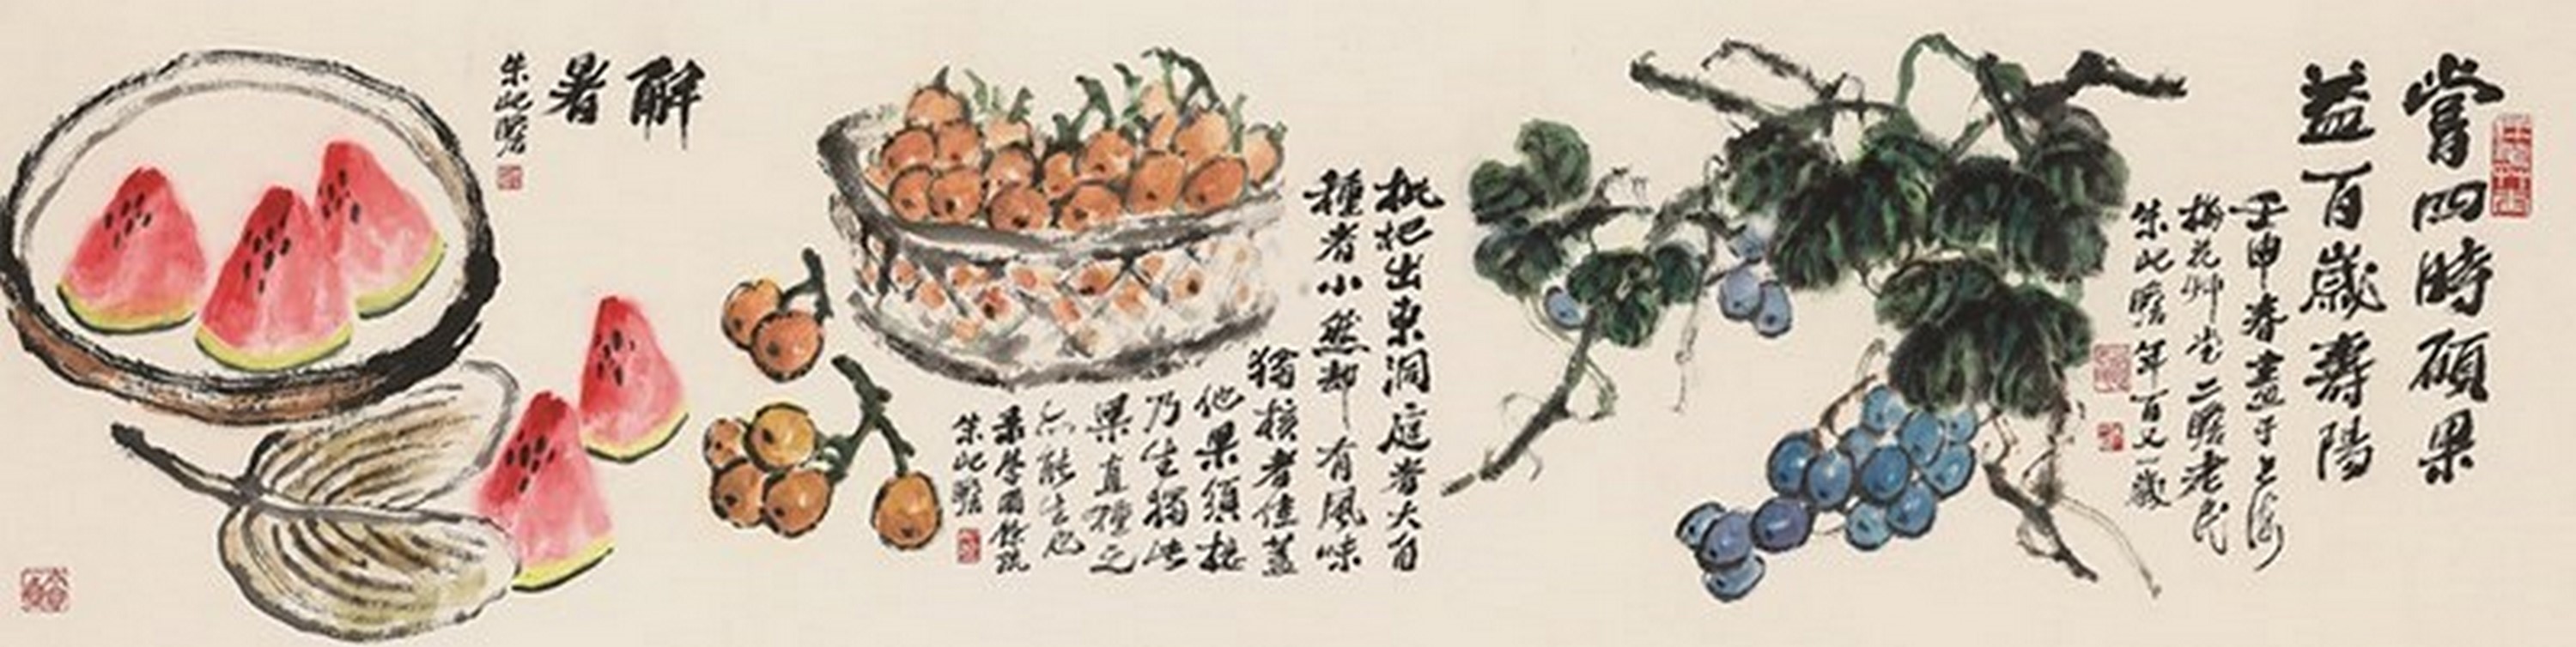 嘗四時碩果
益百歲壽陽
壬申春畫于上海
梅花艸堂二瞻老民
朱屺瞻年百又一歲
枇杷出東洞庭者大自
種者小然却有風味
獨核者佳蓋
他果須接
乃生獨此
果直種之
亦能生也
录學圃餘疏
朱屺瞻
解
暑
朱屺瞻